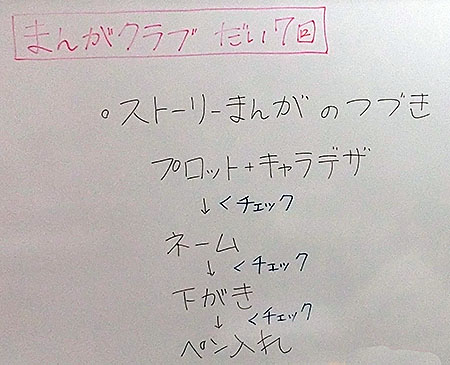 まんがクラブ だい7回
。ストーリーまんがのつづき
プロット+キャラデザ
↓<チェック
ネーム
↓<チェック
下がき
↓<チェック
ペン入れ